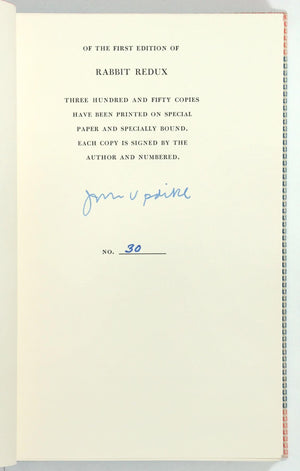 OF THE FIRST EDITION OF
RABBIT REDUX
THREE HUNDRED AND FIFTY COPIES
HAVE BEEN PRINTED ON SPECIAL
PAPER AND SPECIALLY BOUND.
EACH COPY IS SIGNED BY THE
AUTHOR AND NUMBERED.
John Updike
NO. 30